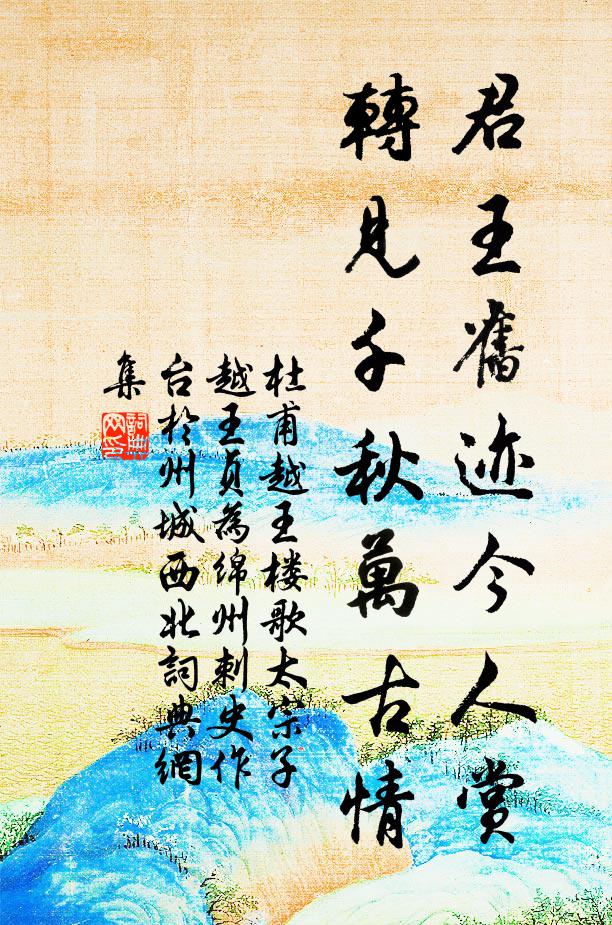 君王舊迹今人賞
轉見千秋萬古情
杜甫越王楼歌太宗子
越王貞為绵州刺史作
台於州城西北詞典網
集
詞典
网印